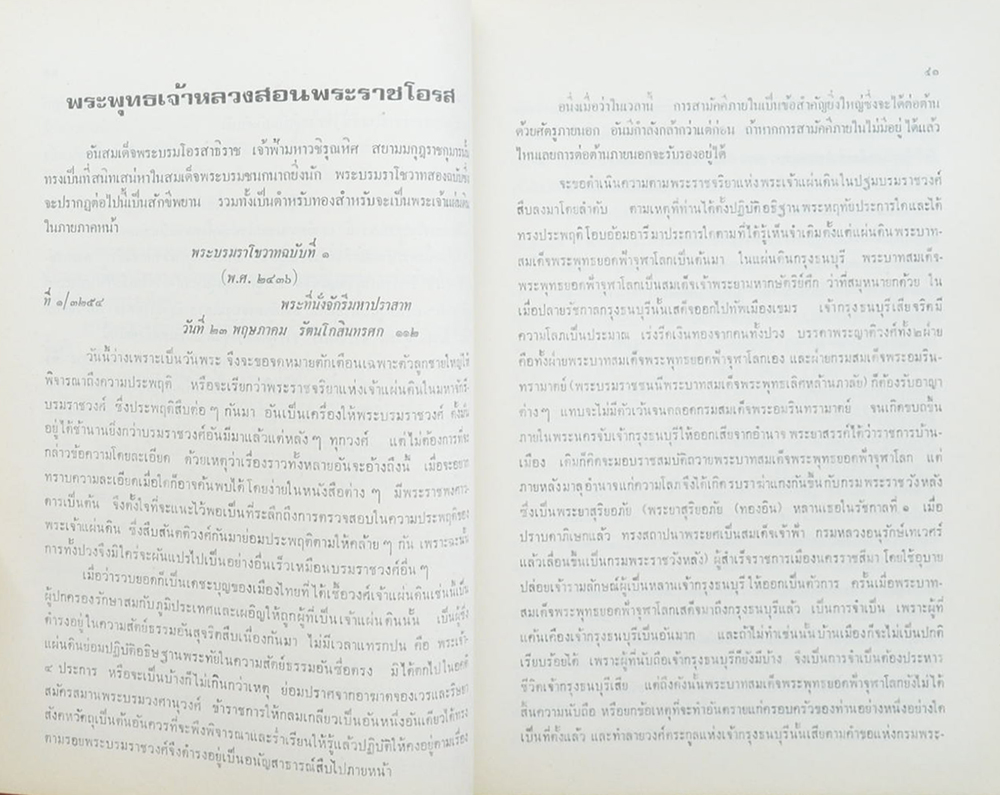 พระพุทธเจ้าหลวงสอนพระราชโอรส
อันสมเด็จพระบรมโอรสาธิราช เจ้าฟ้ามหาวชิรุณหิศ สยามมกุฎราชกุมาร
ทรงเป็นที่สนิทเสน่หาในสมเด็จพระบรมชนกนาถยิ่งนัก พระบรมราโชวาทสองฉบับซึ่ง
จะปรากฏต่อไปนี้เป็นสักขีพยาน รวมทั้งเป็นตำหรับทองสำหรับจะเป็นพระเจ้าแผ่นดิน
ในภายภาคหน้า
พระบรมราโชวาทฉบับที่ ๑
(พ.ศ. ๒๔๓๖)
ที่ ๑/๓๒๕๔ พระที่นั่งจักรีมหาปราสาท
วันที่ ๒๓ พฤษภาคม รัตนโกสินทรศก ๑๑๒
วันนี้ว่างเพราะเป็นวันพระ จึงจะขอจดหมายตักเตือนเฉพาะตัวลูกชายใหญ่ให้
พิจารณาถึงความประพฤติ หรือจะเรียกว่าพระราชจริยาแห่งเจ้าแผ่นดินในมหาจักรี-
บรมราชวงศ์ ซึ่งประพฤติสืบต่อ ๆ กันมา อันเป็นเครื่องให้พระบรมราชวงศ์ ตั้งมั่น
อยู่ได้ช้านานยิ่งกว่าบรมราชวงศ์อันมีมาแล้วแต่หลัง ๆ ทุกวงศ์ แต่ไม่ต้องการที่จะ
กล่าวข้อความโดยละเอียด ด้วยเหตุว่าเรื่องราวทั้งหลายอันจะอ้างถึงนี้ เมื่อจะอยาก
ทราบความละเอียดเมื่อใดก็อาจค้นพบได้โดยง่ายในหนังสือต่าง ๆ มีพระราชพงศาว-
ดารเป็นต้น จึงตั้งใจที่จะแนะไว้พอเป็นที่ระลึกถึงการตรวจสอบในความประพฤติของ
พระเจ้าแผ่นดิน ซึ่งสืบสันตติวงศ์กันมาย่อมประพฤติตามให้คล้าย ๆ กัน เพราะฉะนั้น
การทั้งปวงจึงมิใคร่จะผันแปรไปเป็นอย่างอื่นเร็วเหมือนบรมราชวงศ์อื่น ๆ
เมื่อว่ารวบยอดก็เป็นเดชะบุญของเมืองไทยที่ได้เชื้อวงศ์เจ้าแผ่นดินเช่นนี้เป็น
ผู้ปกครองรักษาสมกับภูมิประเทศและเผอิญให้ถูกผู้ที่เป็นเจ้าแผ่นดินนั้น เป็นผู้ซึ่ง
ดำรงอยู่ในความสัตย์ธรรมอันสุจริตสืบเนื่องกันมา ไม่มีเวลาแทรกปน คือ พระเจ้า-
แผ่นดินย่อมปฏิบัติอธิษฐานพระทัยในความสัตย์ธรรมอันซื่อตรง มิได้ตกไปในอคติ
๔ ประการ หรือจะเป็นบ้างก็ไม่เกินกว่าเหตุ ย่อมปราศจากอาฆาตจองเวรและริษยา
สมัครสมานพระบรมวงศานุวงศ์ ข้าราชการให้กลมเกลียวเป็นอันหนึ่งอันเดียวได้ทรง
สังคหวัตถุเป็นต้นอันควรที่จะพึงพิจารณาและร่ำเรียนให้รู้แล้วปฏิบัติให้คงอยู่ตามเรื่อง
ตามรอยพระบรมราชวงศ์จึงดำรงอยู่เป็นอนัญสาธารณ์สืบไปภายหน้า
๔๑
อนึ่งเมื่อว่าในเวลานี้ การสามัคคีภายในเป็นข้อสำคัญยิ่งใหญ่ซึ่งจะได้ต่อต้าน
ด้วยศัตรูภายนอก อันมีกำลังกล้ากว่าแต่ก่อน ถ้าหากการสามัคคีภายในไม่มีอยู่ได้แล้ว
ไหนเลยการต่อต้านภายนอกจะรับรองอยู่ได้
จะขอดำเนินความตามพระราชจริยาแห่งพระเจ้าแผ่นดินในปฐมบรมราชวงศ์
สืบลงมาโดยลำดับ ตามเหตุที่ท่านได้ตั้งปฏิบัติอธิฐานพระหฤทัยประการใดและได้
ทรงประพฤติโอบอ้อมอารีมาประการใดตามที่ได้รู้เห็นจำเดิมตั้งแต่แผ่นดินพระบาท-
สมเด็จพระพุทธยอดฟ้าจุฬาโลกเป็นต้นมา ในแผ่นดินกรุงธนบุรี พระบาทสมเด็จ-
พระพุทธยอดฟ้าจุฬาโลกเป็นสมเด็จเจ้าพระยามหากษัตริย์ศึก ว่าที่สมุหนายกด้วย ใน
เมื่อปลายรัชกาลกรุงธนบุรีนั้นเสด็จออกไปทัพเมืองเขมร เจ้ากรุงธนบุรีเสียจริตมี
ความโลภเป็นประมาณ เร่งรัดเงินทองจากคนทั้งปวง บรรดาพระญาติวงศ์ทั้ง๒ฝ่าย
คือทั้งฝ่ายพระบาทสมเด็จพระพุทธยอดฟ้าจุฬาโลกเอง และฝ่ายกรมสมเด็จพระอมริน-
ทรามาตย์ (พระบรมราชชนนีพระบาทสมเด็จพระพุทธเลิศหล้านภาลัย) ก็ต้องรับอาญา
ต่าง ๆ แทบจะไม่มีตัวเว้นจนตลอดกรมสมเด็จพระอมรินทรามาตย์ จนเกิดขบถขึ้น
ภายในพระนครจับเจ้ากรุงธนบุรีให้ออกเสียจากอำนาจ พระยาสรรค์ได้ว่าราชการบ้าน-
เมือง เดิมก็คิดจะมอบราชสมบัติถวายพระบาทสมเด็จพระพุทธยอดฟ้าจุฬาโลก แต่
ภายหลังมาลุอำนาจแก่ความโลภจึงได้เกิดรบราฆ่าแกงกันขึ้นกับกรมพระราชวังหลัง
ซึ่งเป็นพระยาสุริยอภัย (พระยาสุริยอภัย (ทองอิน) หลานเธอในรัชกาลที่ ๑ เมื่อ
ปราบดาภิเษกแล้ว ทรงสถาปนาพระยศเป็นสมเด็จเจ้าฟ้า กรมหลวงอนุรักษ์เทเวศร์
แล้วเลื่อนขึ้นเป็นกรมพระราชวังหลัง) ผู้สำเร็จราชการเมืองนครราชสีมา โดยใช้อุบาย
ปล่อยเจ้ารามลักษณ์ผู้เป็นหลานเจ้ากรุงธนบุรีให้ออกเป็นตัวการ ครั้นเมื่อพระบาท-
สมเด็จพระพุทธยอดฟ้าจุฬาโลกเสด็จมาถึงกรุงธนบุรีแล้ว เป็นการจำเป็น เพราะผู้ที่
แค้นเคืองเจ้ากรุงธนบุรีเป็นอันมาก และถ้าไม่ทำเช่นนั้นบ้านเมืองก็จะไม่เป็นปกติ
เรียบร้อยได้ เพราะผู้ที่นับถือเจ้ากรุงธนบุรีก็ยังมีบ้าง จึงเป็นการจำเป็นต้องประหาร
ชีวิตเจ้ากรุงธนบุรีเสีย แต่ถึงดังนั้นพระบาทสมเด็จพระพุทธยอดฟ้าจุฬาโลกยังไม่ได้
สิ้นความนับถือ หรือยกข้อเหตุที่จะทำอันตรายแก่ครอบครัวของท่านอย่างหนึ่งอย่างใด
เป็นที่ตั้งแล้ว และทำลายวงศ์ตระกูลแห่งเจ้ากรุงธนบุรีนั้นเสียตามคำขอแห่งกรมพระ-